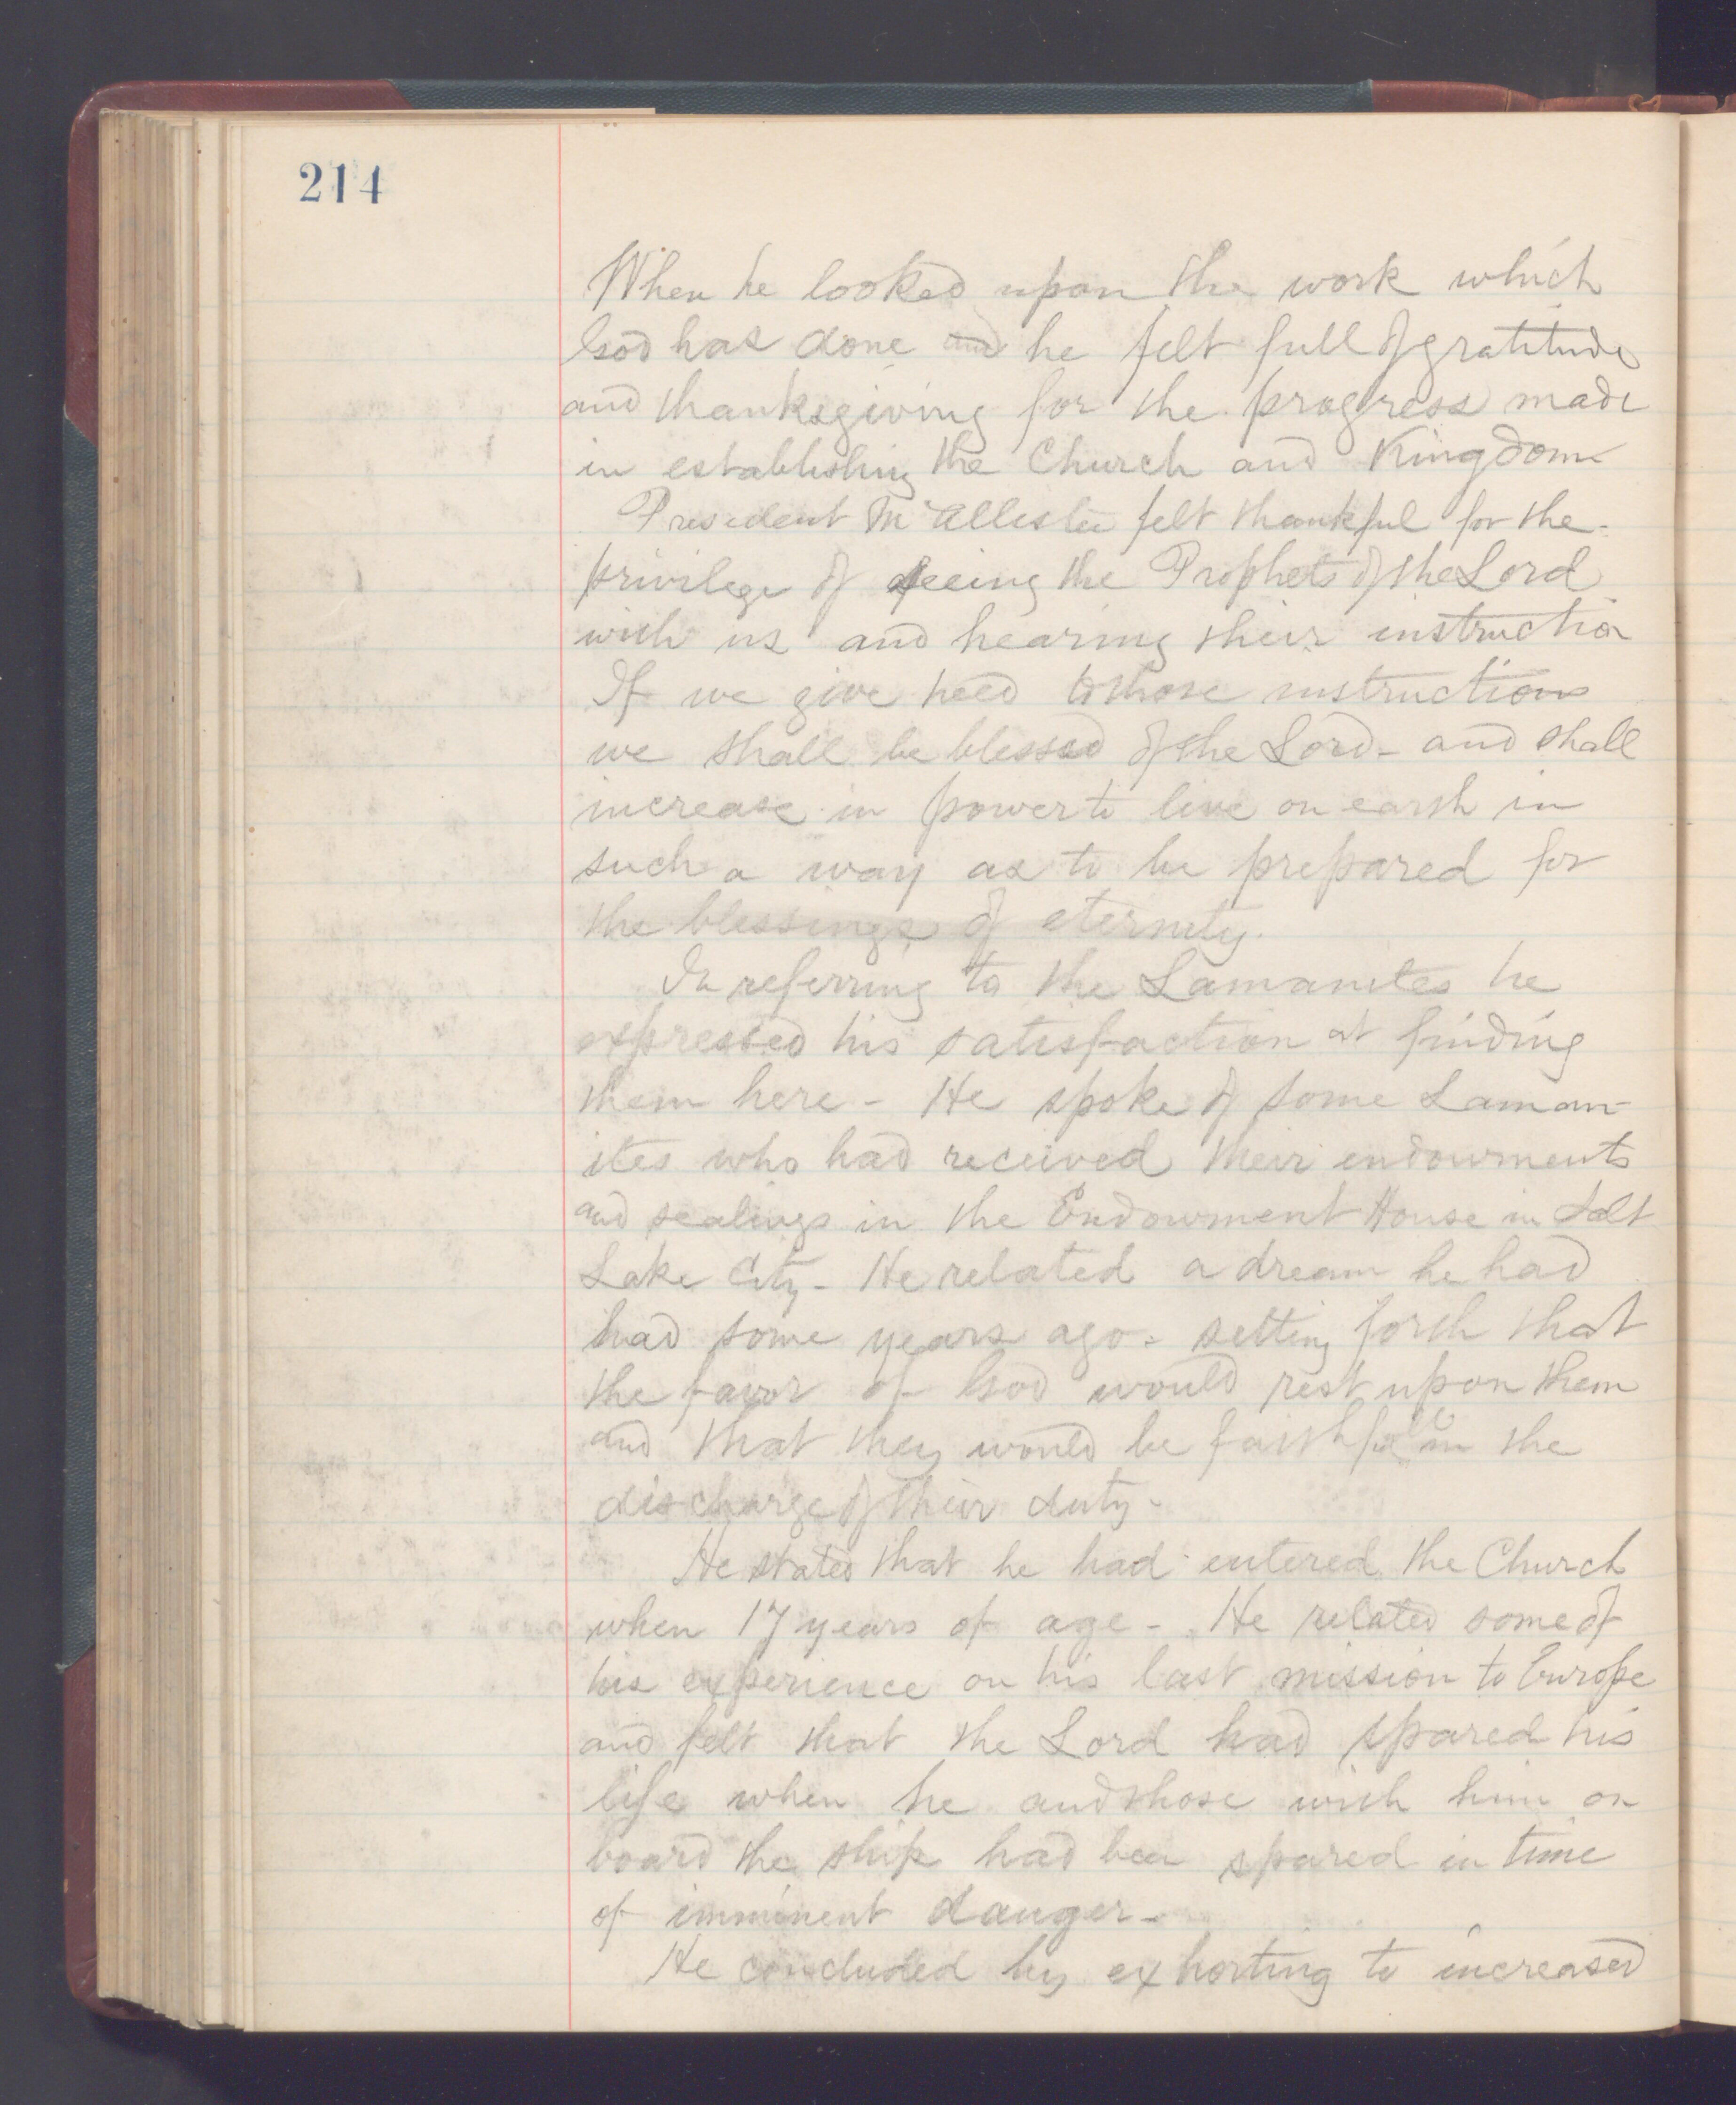 214
When he looked upon the work which
God has done and he felt full of gratitude
and thanksgiving for the progress made
in establishing the Church and Kingdom
President McAllister felt thankful for the
privilege of seeing the Prophets of the Lord
with us and hearing their instruction
If we give heed to those instructions
we shall be blessed of the Lord - and shall
increase in power to live on earth in
such a way as to be prepared for
the blessings of eternity.
In referring to the Lamanites he
expressed his satisfaction at finding
them here - He spoke of some Laman-
ites who had received their endowments
and sealings in the Endowment House in Salt
Lake City - He related a dream he had
had some years ago - setting forth that
the favor of God would rest upon them
and that they would be faithful in the
discharge of their duty -
He stated that he had entered the Church
when 17 years of age - He related some of
his experience on his last mission to Europe
and felt that the Lord had spared his
life when he and those with him on
board the ship had been spared in time
of imminent danger -
He concluded by exhorting to increased